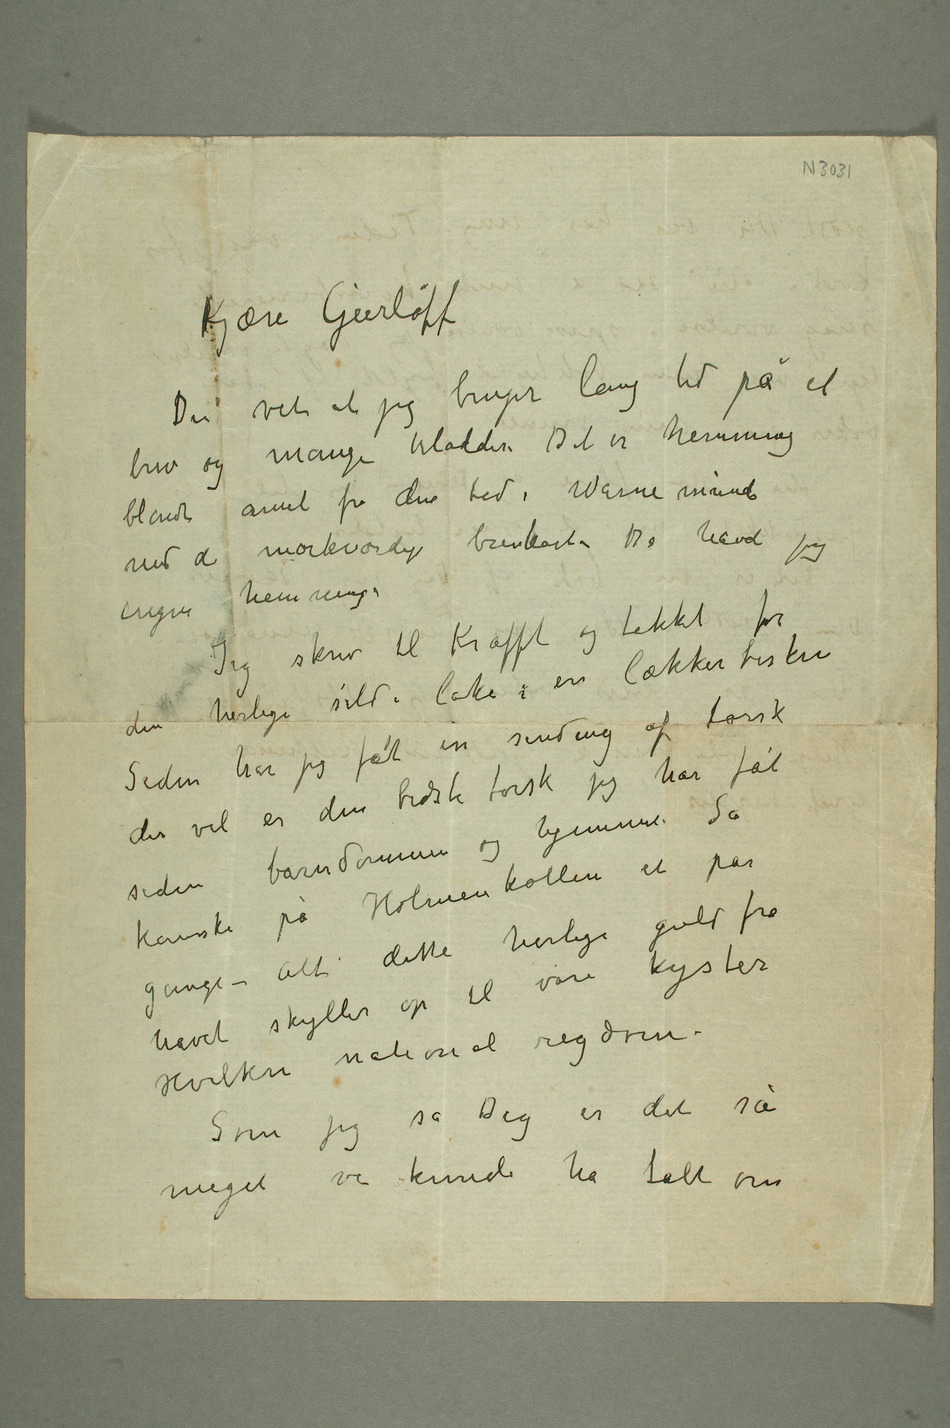 N 3031
Kjære Gierløff
Du vet at jeg bruger lang tid på et
brev og mange kladder. Det er hemning
blandt annet fra den tid i Warnemünde
med de mærkværdige brevkort – Da havde jeg
ingen hemninger
Jeg skrev til Krafft og takket for
den herlige sild i lake i en lækkerbisken
Siden har jeg fåt en sending af torsk
der vel er den bedste torsk jeg har fåt
siden barndommen og hjemme. Så
kanske på Holmenkollen et par
gange – Alt dette herlige guld fra
havet skyller op til våre kyster
Hvilken national rigdom –
Som jeg sa Dig er det så
meget vi kunde ha talt om